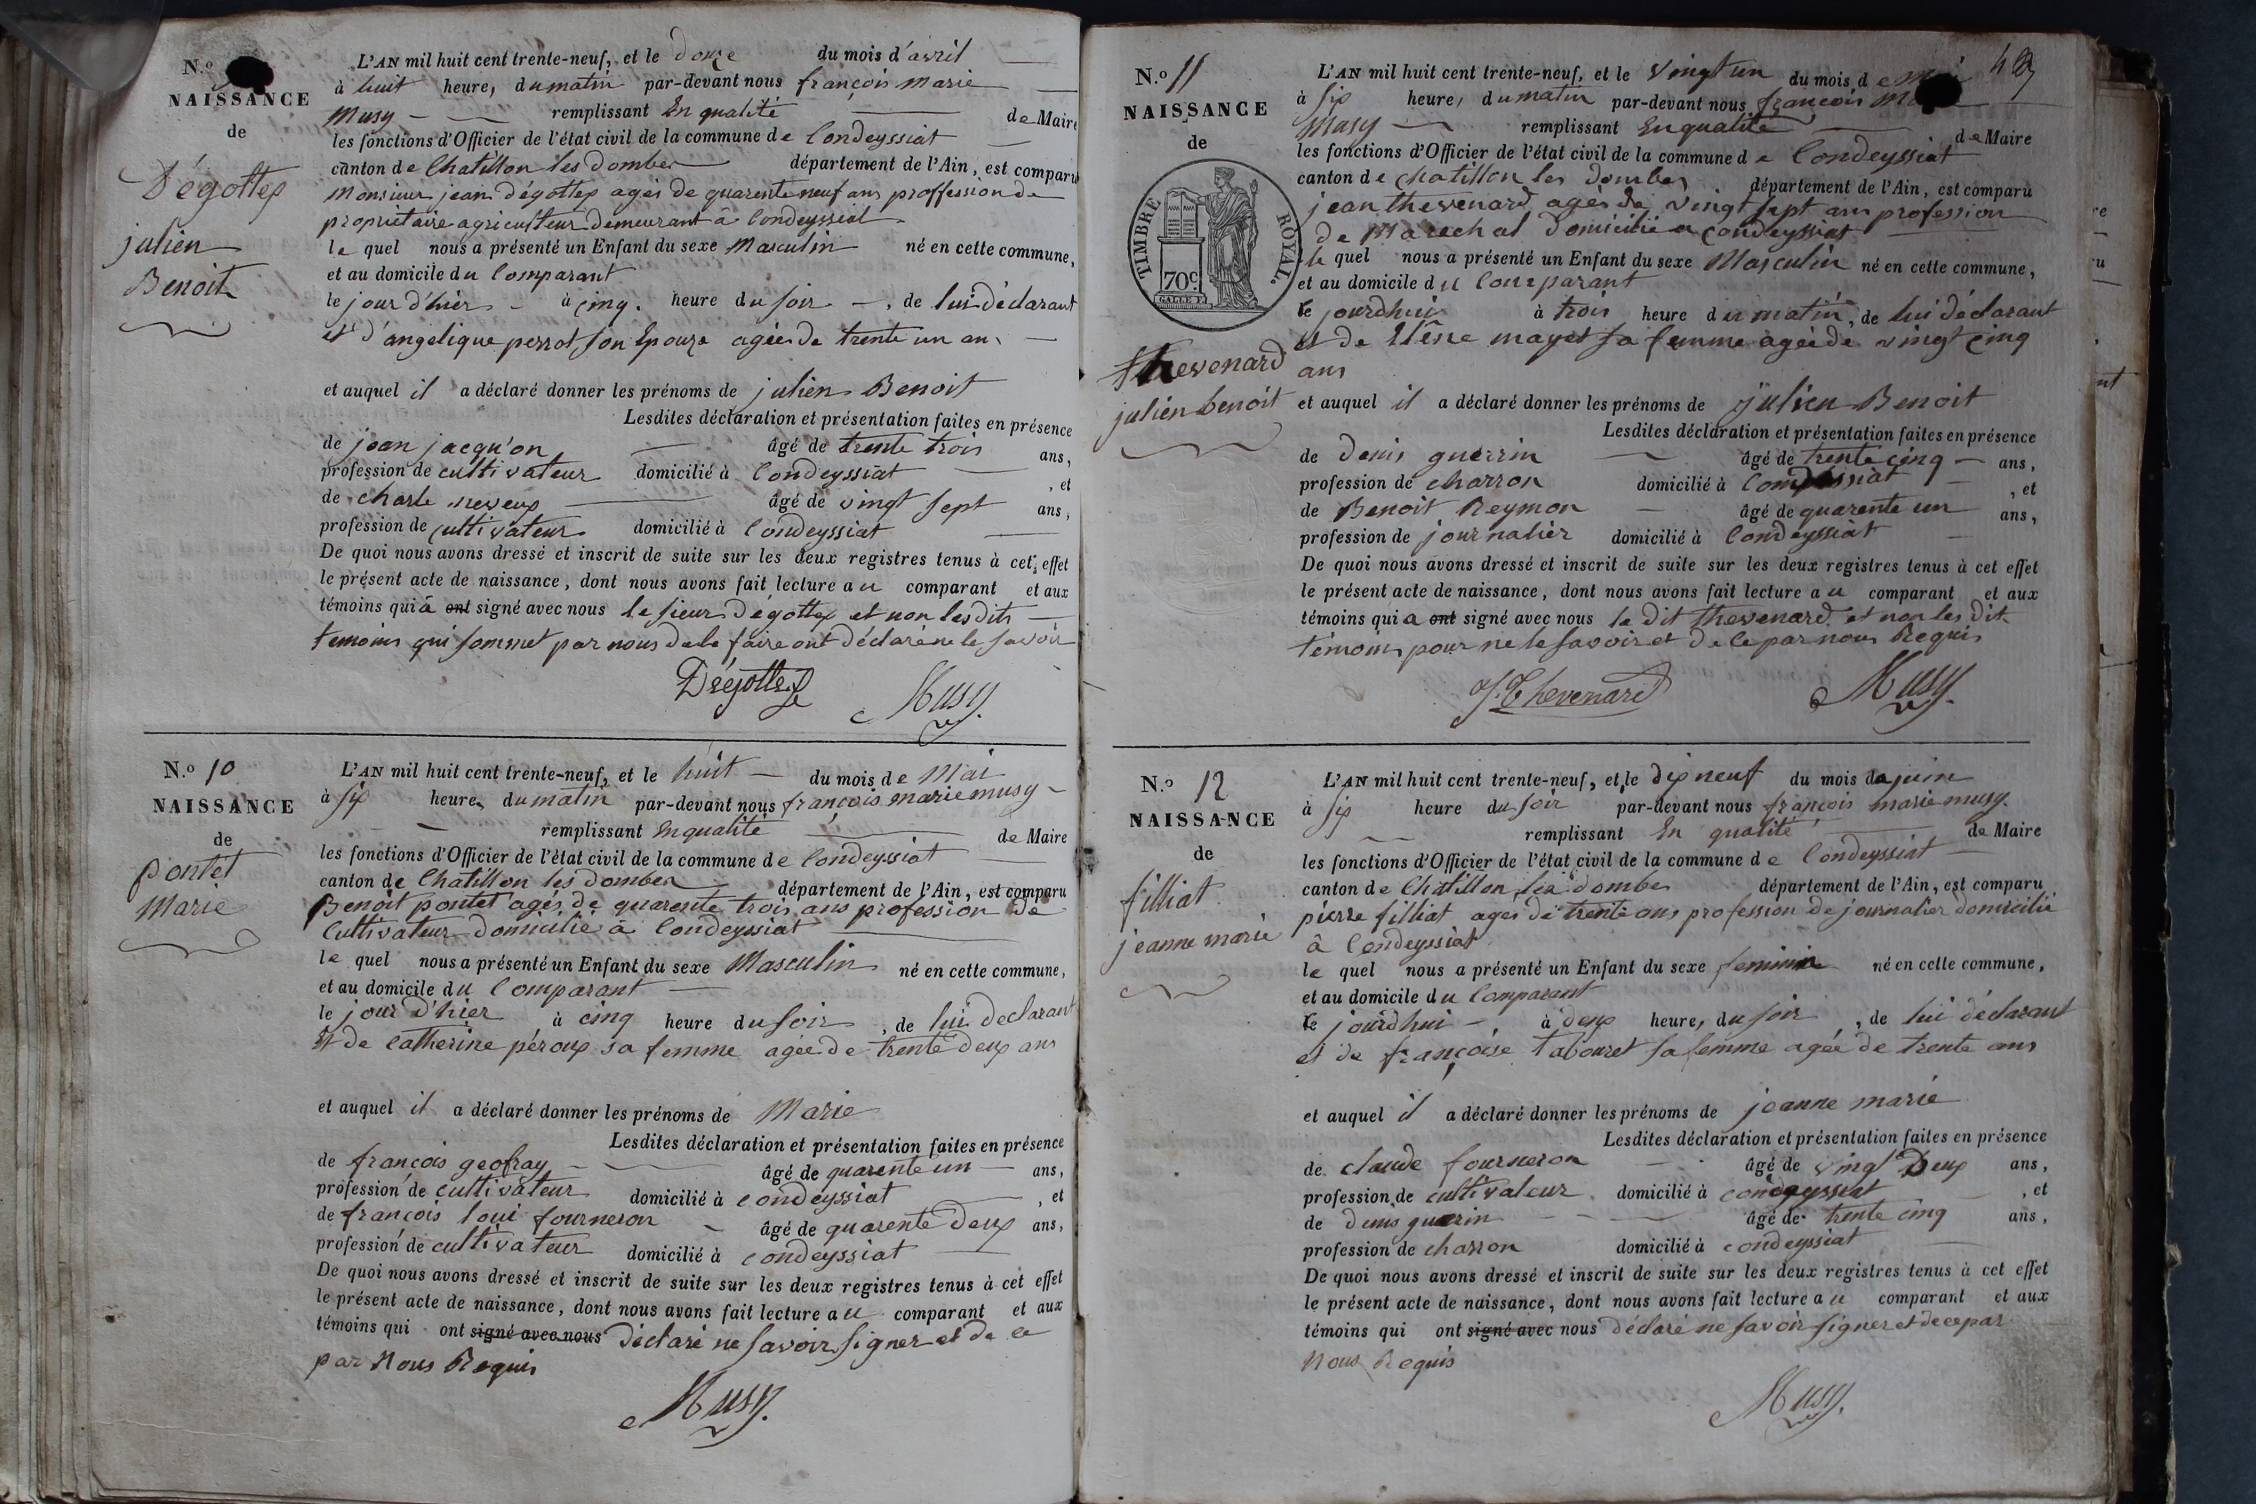 N.º
NAISSANCE
de
Dégottex
julien
Benoit
L'AN mil huit cent trente-neuf, et le douze du mois d'avril
à huit heure, du matin par-devant nous françois marie
musy remplissant En qualité de Maire
les fonctions d'Officier de l'état civil de la commune de Condeyssiat
canton de Chatillon les dombes département de l'Ain, est comparu
Monsieur jean dégottex agés de quarente neuf ans proffession de
propriétaire agriculteur demeurant à Condeyssiat
le quel nous a présenté un Enfant du sexe Masculin né en cette commune,
et au domicile du Comparant
le jour d'hièr à cinq heure du soir, de lui déclarant
et d'angelique perrot son Epouze agée de trente un ans
et auquel il a déclaré donner les prénoms de julien Benoit
Lesdites déclaration et présentation faites en présence
de jean jacqu'on âgé de trente trois ans,
profession de cultivateur domicilié à Condeyssiat, et
de charle neveux âgé de vingt sept ans,
profession de cultivateur domicilié à Condeyssiat
De quoi nous avons dressé et inscrit de suite sur les deux registres tenus à cet effet
le présent acte de naissance, dont nous avons fait lecture au comparant et aux
témoins qui à ont signé avec nous le sieur Dégottex et non lesdits
temoins qui sommet par nous de le faire ont déclaré ne le savoir
Dégottex Musy
N.º 10
NAISSANCE
de
pontet
Marie
L'AN mil huit cent trente-neuf, et le huit du mois de Mai
à six heure, du matin par-devant nous françois marie musy
remplissant En qualité de Maire
les fonctions d'Officier de l'état civil de la commune de Condeyssiat
canton de Chatillon les dombes département de l'Ain, est comparu
Benoit pontet agés de quarente trois ans profession de
Cultivateur domicilié à Condeyssiat
le quel nous a présenté un Enfant du sexe Masculin né en cette commune,
et au domicile du Comparant
le jour d'hier à cinq heure du soir, de lui declarant
Et de Catherine péroux sa femme agée de trente deux ans
et auquel il a déclaré donner les prénoms de Marie
Lesdites déclaration et présentation faites en présence
de françois geofray âgé de quarente un ans,
profession de cultivateur domicilié à condeyssiat, et
de françois loui fourneron âgé de quarente deux ans,
profession de cultivateur domicilié à condeyssiat
De quoi nous avons dressé et inscrit de suite sur les deux registres tenus à cet effet
le présent acte de naissance, dont nous avons fait lecture au comparant et aux
témoins qui ont signé avec nous déclaré ne savoir signer et de ce
par Nous Requis
Musy
N.º 11
NAISSANCE
de
TIMBRE ROYAL.
70c
thevenard
julien benoit
L'AN mil huit cent trente-neuf, et le vingt un du mois de
à six heure, du matin par-devant nous françois
Musy remplissant En qualité de Maire
les fonctions d'Officier de l'état civil de la commune de Condeyssiat
canton de chatillon les dombes département de l'Ain, est comparu
jean thevenard agés de vingt sept ans profession
de Marechal domicilié a condeyssiat
le quel nous a présenté un Enfant du sexe Masculin né en cette commune,
et au domicile du Comparant
le jourdhui à trois heure du matin, de lui déclarant
Et de mayet sa femme agée de vingt cinq
ans
et auquel il a déclaré donner les prénoms de julien Benoit
Lesdites déclaration et présentation faites en présence
de denis guerrin âgé de trente cinq ans,
profession de charron domicilié à Condeyssiat, et
de Benoit Reymon âgé de quarente un ans,
profession de journalièr domicilié à Condeyssiat
De quoi nous avons dressé et inscrit de suite sur les deux registres tenus à cet effet
le présent acte de naissance, dont nous avons fait lecture au comparant et aux
témoins qui a ont signé avec nous le dit thevenard et non les dit
témoins pour ne le savoir et de ce par nous Requis
J. Thevenard Musy
N.º 12
NAISSANCE
de
filliat
jeanne marie
L'AN mil huit cent trente-neuf, et le dix neuf du mois de juin
à six heure du soir par-devant nous françois marie musy
remplissant En qualité de Maire
les fonctions d'Officier de l'état civil de la commune de Condeyssiat
canton de Chatillon les dombes département de l'Ain, est comparu
pierre filliat agés de trente ans profession de journalier domicilié
à Condeyssiat
le quel nous a présenté un Enfant du sexe feminin né en cette commune,
et au domicile du Comparant
le jourdhui à deux heure, du soir, de lui déclarant
et de françoise tabouret sa femme agée de trente ans
et auquel il a déclaré donner les prénoms de jeanne marie
Lesdites déclaration et présentation faites en présence
de claude fourneron âgé de vingt Deux ans,
profession de cultivateur domicilié à condeyssiat, et
de denis guerin âgé de trente cinq ans,
profession de charron domicilié à condeyssiat
De quoi nous avons dressé et inscrit de suite sur les deux registres tenus à cet effet
le présent acte de naissance, dont nous avons fait lecture au comparant et aux
témoins qui ont signé avec nous déclaré ne savoir signer et de ce par
Nous Requis
Musy